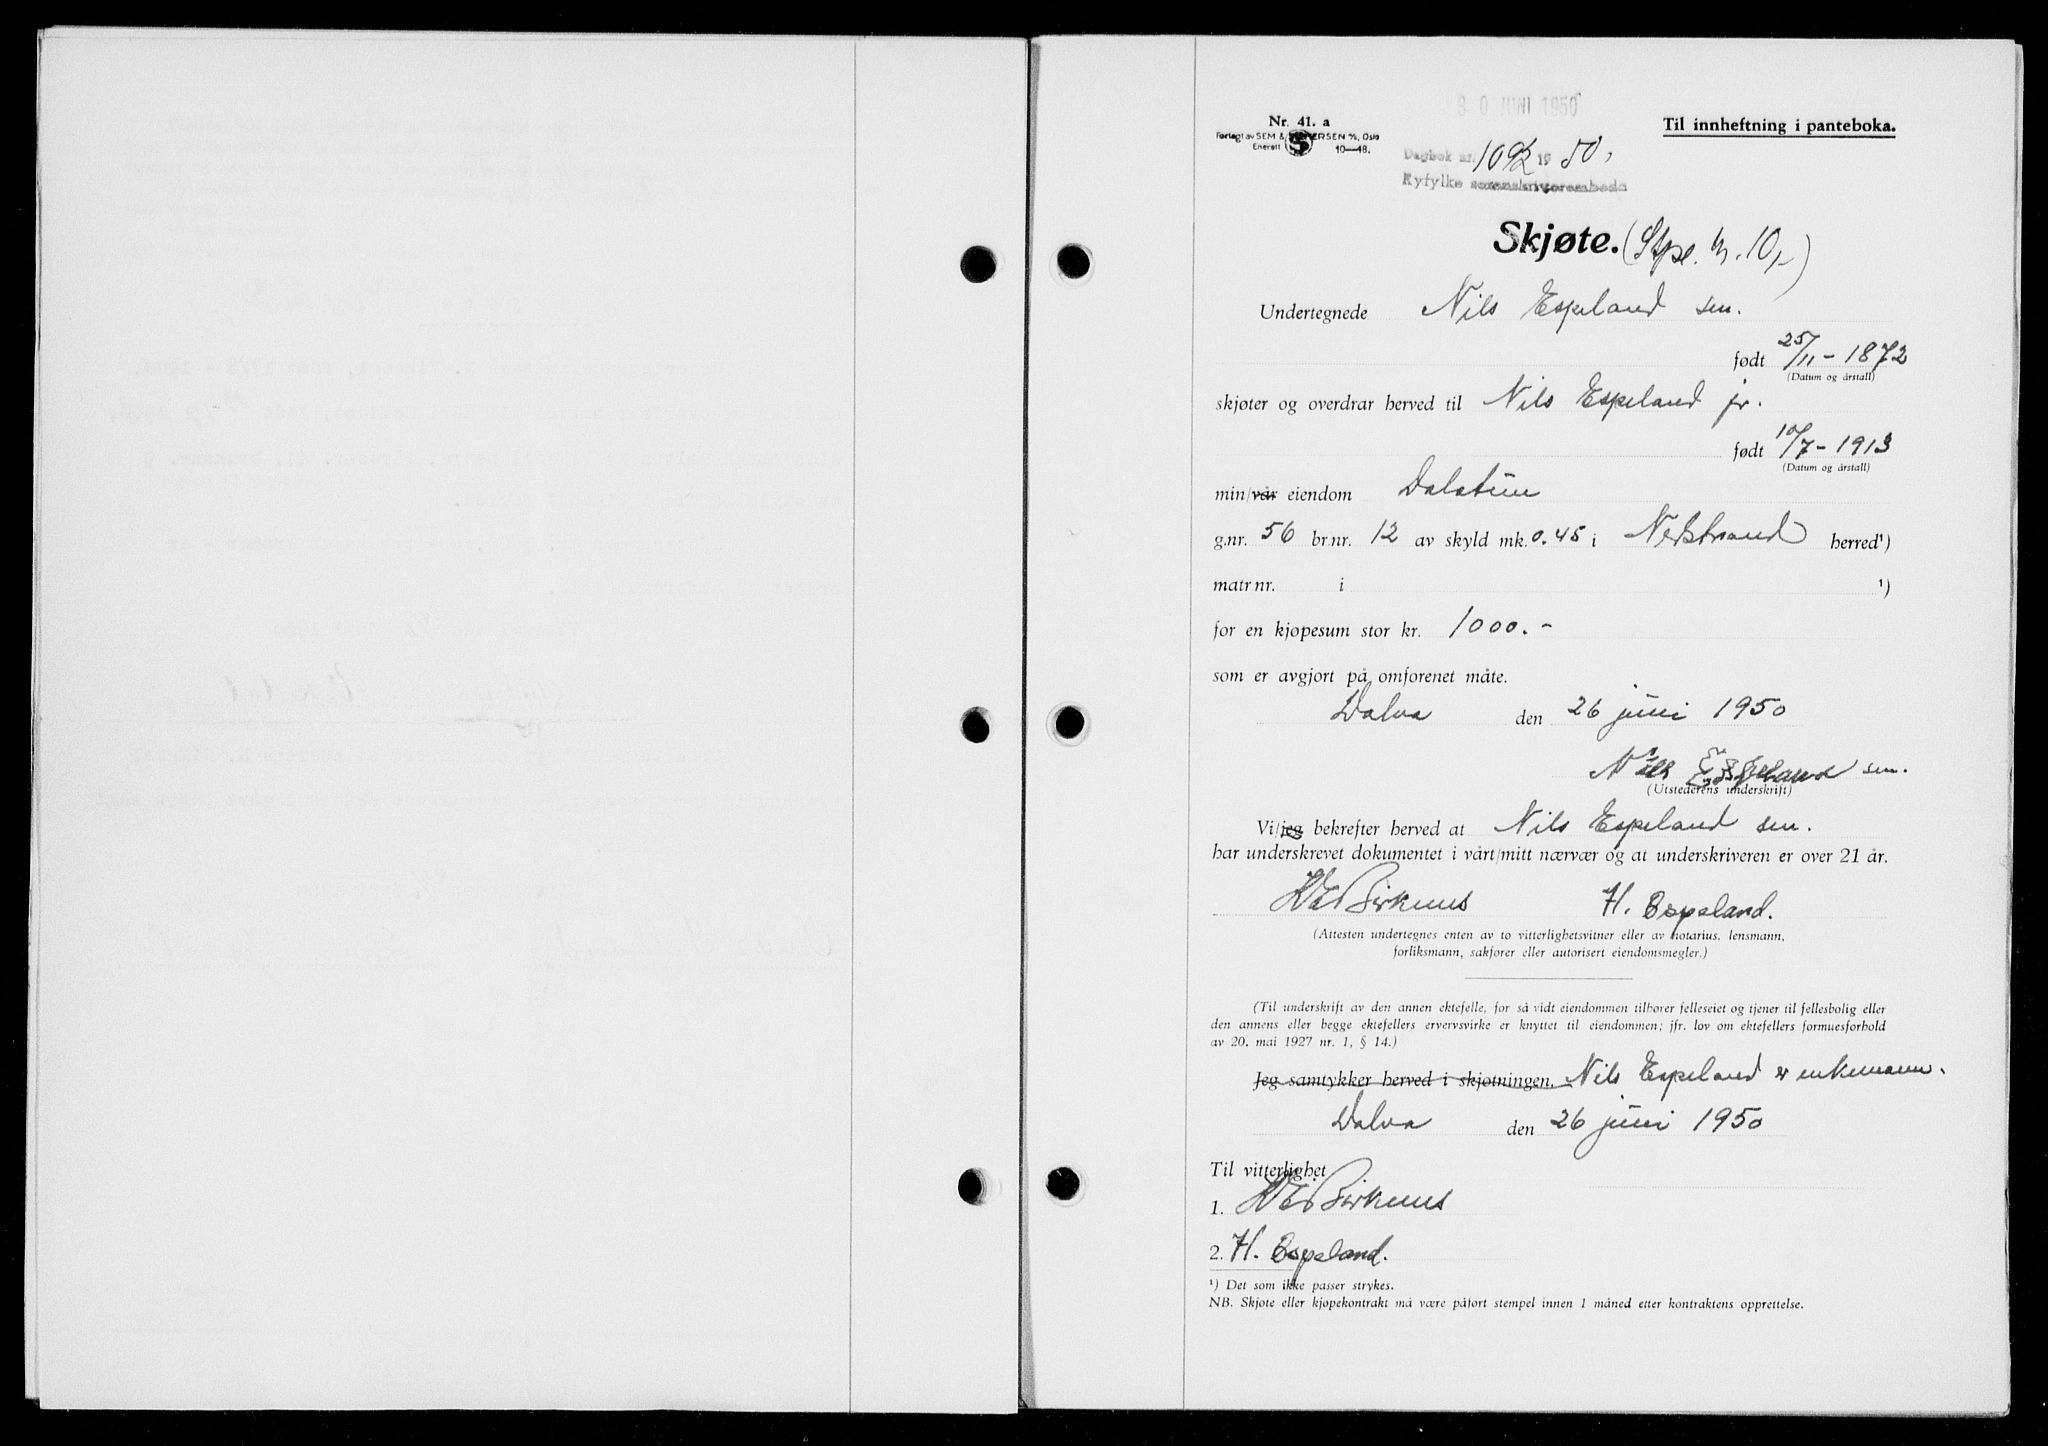 30 JUNI 1950
Nr. 41. a
Til innheftning i panteboka.
Forlagt av SEM & STENERSEN A/S, Oslo
Enerett 10—48.
Dagbok nr. 1092 1950.
Ryfylke sorenskriverembede
Skjøte. (Stpl. kr. 10,-)
Undertegnede Nils Espeland sen.
født 25/11 - 1872
(Datum og årstall)
skjøter og overdrar herved til Nils Espeland jr.
født 10/7 - 1913
(Datum og årstall)
min/vår eiendom Dalatun
g.nr. 56 br.nr. 12 av skyld mk. 0.45 i Nedstrand herred¹)
matr.nr. i ¹)
for en kjøpesum stor kr. 1000.-
som er avgjort på omforenet måte.
Dalva den 26 juni 1950
Nils Espeland sen.
(Utstederens underskrift)
Vi/jeg bekrefter herved at Nils Espeland sen.
har underskrevet dokumentet i vårt/mitt nærvær og at underskriveren er over 21 år.
Birknes H. Espeland.
(Attesten undertegnes enten av to vitterlighetsvitner eller av notarius, lensmann,
forliksmann, sakfører eller autorisert eiendomsmegler.)
(Til underskrift av den annen ektefelle, for så vidt eiendommen tilhører felleseiet og tjener til fellesbolig eller
den annens eller begge ektefellers ervervsvirke er knyttet til eiendommen; jfr. lov om ektefellers formuesforhold
av 20. mai 1927 nr. 1, § 14.)
Jeg samtykker herved i skjøtningen. Nils Espeland er enkemann.
Dalva den 26 juni 1950
Til vitterlighet
1. Birknes
2. H. Espeland.
¹) Det som ikke passer strykes.
NB. Skjøte eller kjøpekontrakt må være påført stempel innen 1 måned etter kontraktens opprettelse.